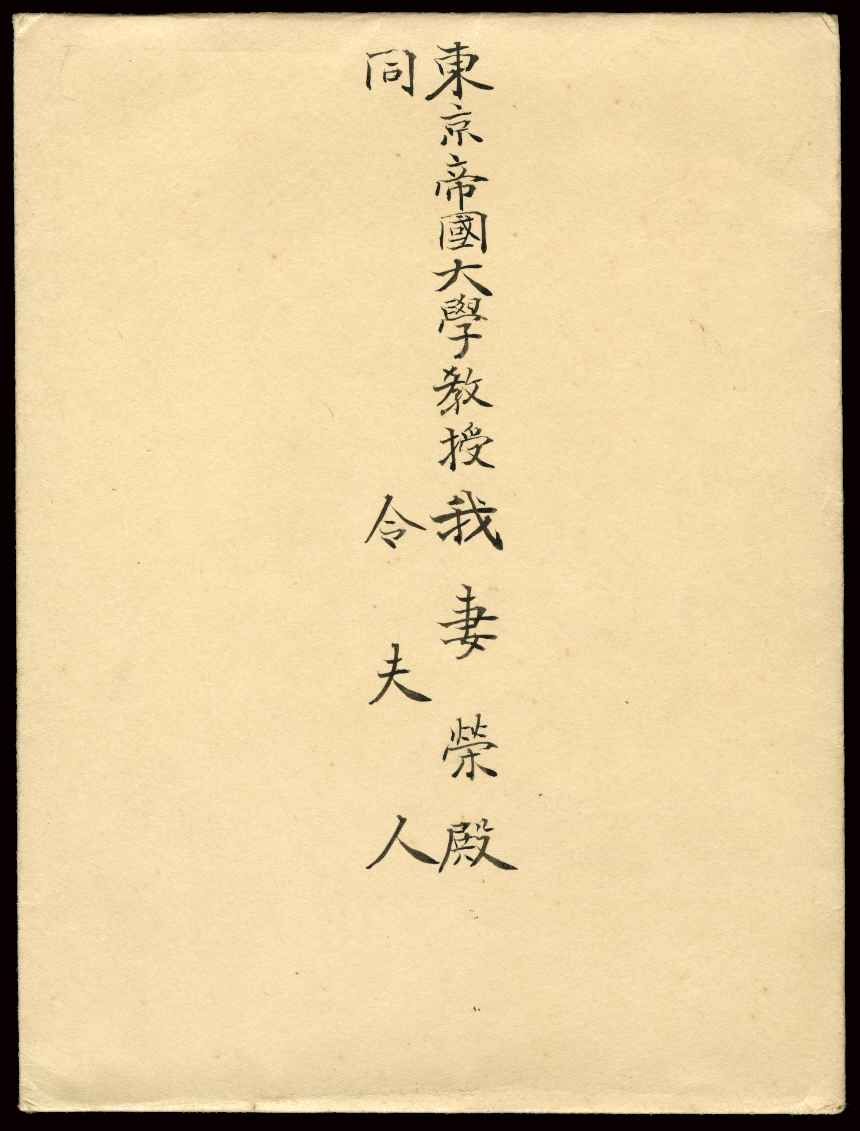 東京帝國大學教授我妻榮殿
同令夫人